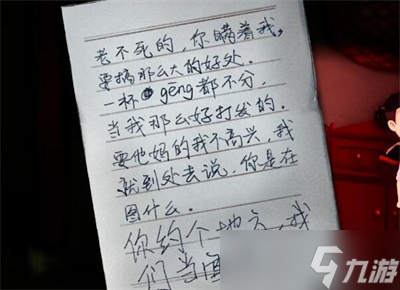 老不死的，你瞒着我，
要搞那么大的好处.
一杯gēng都不分，
当我那么好打发的.
要他妈的我不高兴，我
就到处去说，你是在
图什么。
你约个地方，我
们当面
九游